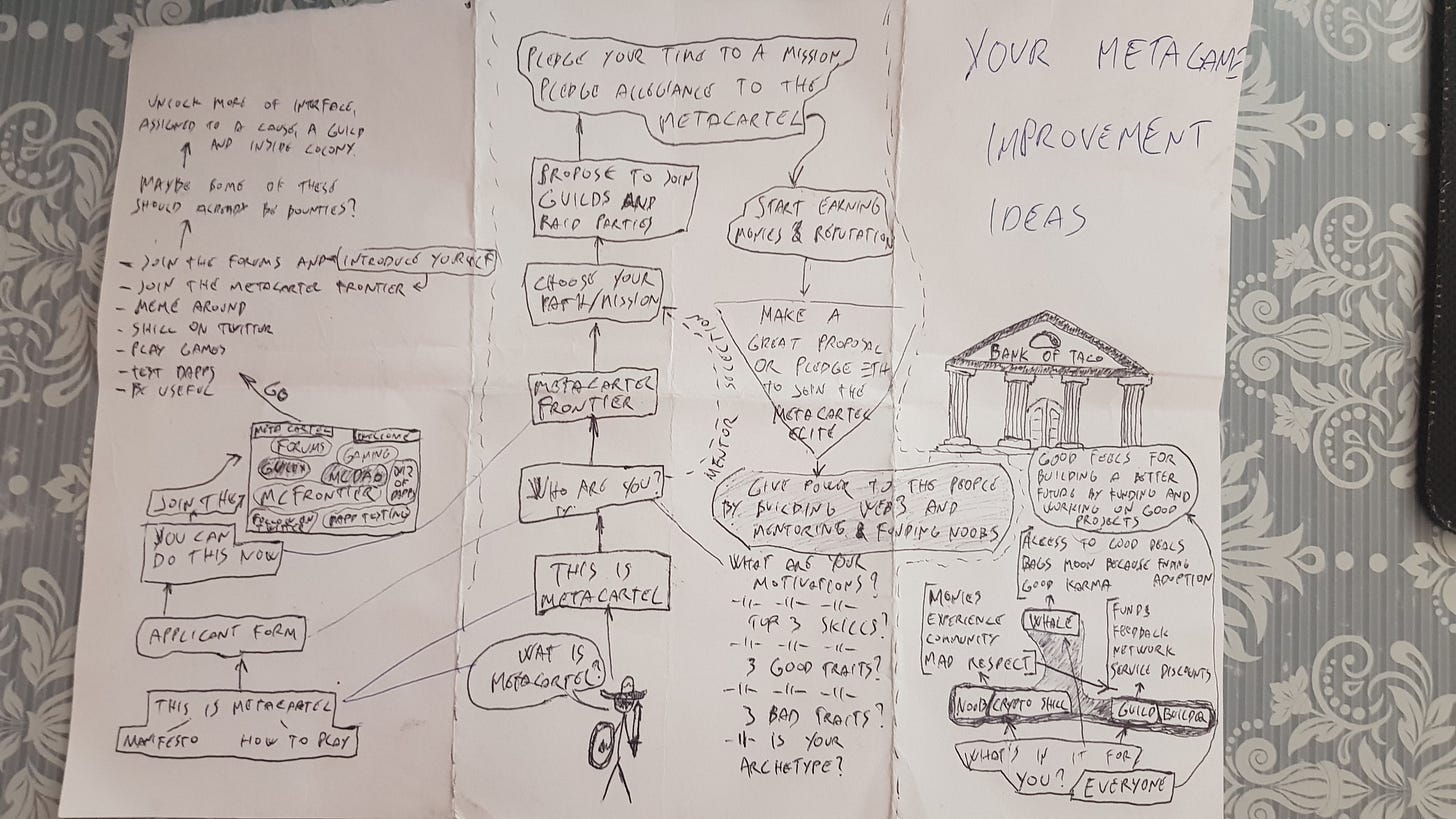 UNLOCK MORE OF INTERFACE,
ASSIGNED TO A CAUSE, A GUILD
AND INSIDE COLONY.
MAYBE SOME OF THESE
SHOULD ALREADY BE BOUNTIES?
- JOIN THE FORUMS AND INTRODUCE YOURSELF
- JOIN THE METACARTEL FRONTIER
- MEME AROUND
- SHILL ON TWITTER
- PLAY GAMES
- TEST DAPPS
- BE USEFUL
GO
META CARTEL
WELCOME
FORUMS
GAMING
GUILDS
MCDAO
MCFRONTIER
OF
DAPPS
FOLLOW ON
TWITTER
DAPP TESTING
JOIN THE
YOU CAN
DO THIS NOW
APPLICANT FORM
THIS IS METACARTEL
MANIFESTO HOW TO PLAY
PLEDGE YOUR TIME TO A MISSION
PLEDGE ALLEGIANCE TO THE
METACARTEL
PROPOSE TO JOIN
GUILDS AND
RAID PARTIES
CHOOSE YOUR
PATH/MISSION
METACARTEL
FRONTIER
WHO ARE YOU?
THIS IS
METACARTEL
WAT IS
METACARTEL?
START EARNING
MONIES & REPUTATION
MAKE A
GREAT PROPOSAL
OR PLEDGE ETH
TO JOIN THE
METACARTEL
ELITE
MENTOR SELECTION
GIVE POWER TO THE PEOPLE
BY BUILDING WEB3 AND
MENTORING & FUNDING NOOBS
WHAT ARE YOUR
MOTIVATIONS?
-11- -11- -11-
TOP 3 SKILLS?
-11- -11- -11-
3 GOOD TRAITS?
-11- -11- -11-
3 BAD TRAITS?
-11- IS YOUR
ARCHETYPE?
YOUR METAGAME
IMPROVEMENT
IDEAS
BANK OF TACO
GOOD FEELS FOR
BUILDING A BETTER
FUTURE BY FUNDING AND
WORKING ON GOOD
PROJECTS
ACCESS TO GOOD DEALS
BAGS MOON BECAUSE
GOOD KARMA ADOPTION
MONIES
EXPERIENCE
COMMUNITY
MAD RESPECT
WHALE
FUNDS
FEEDBACK
NETWORK
SERVICE DISCOUNTS
NOOB/CRYPTO SHILL
GUILD/BUILDER
WHAT'S IN IT FOR
YOU?
EVERYONE